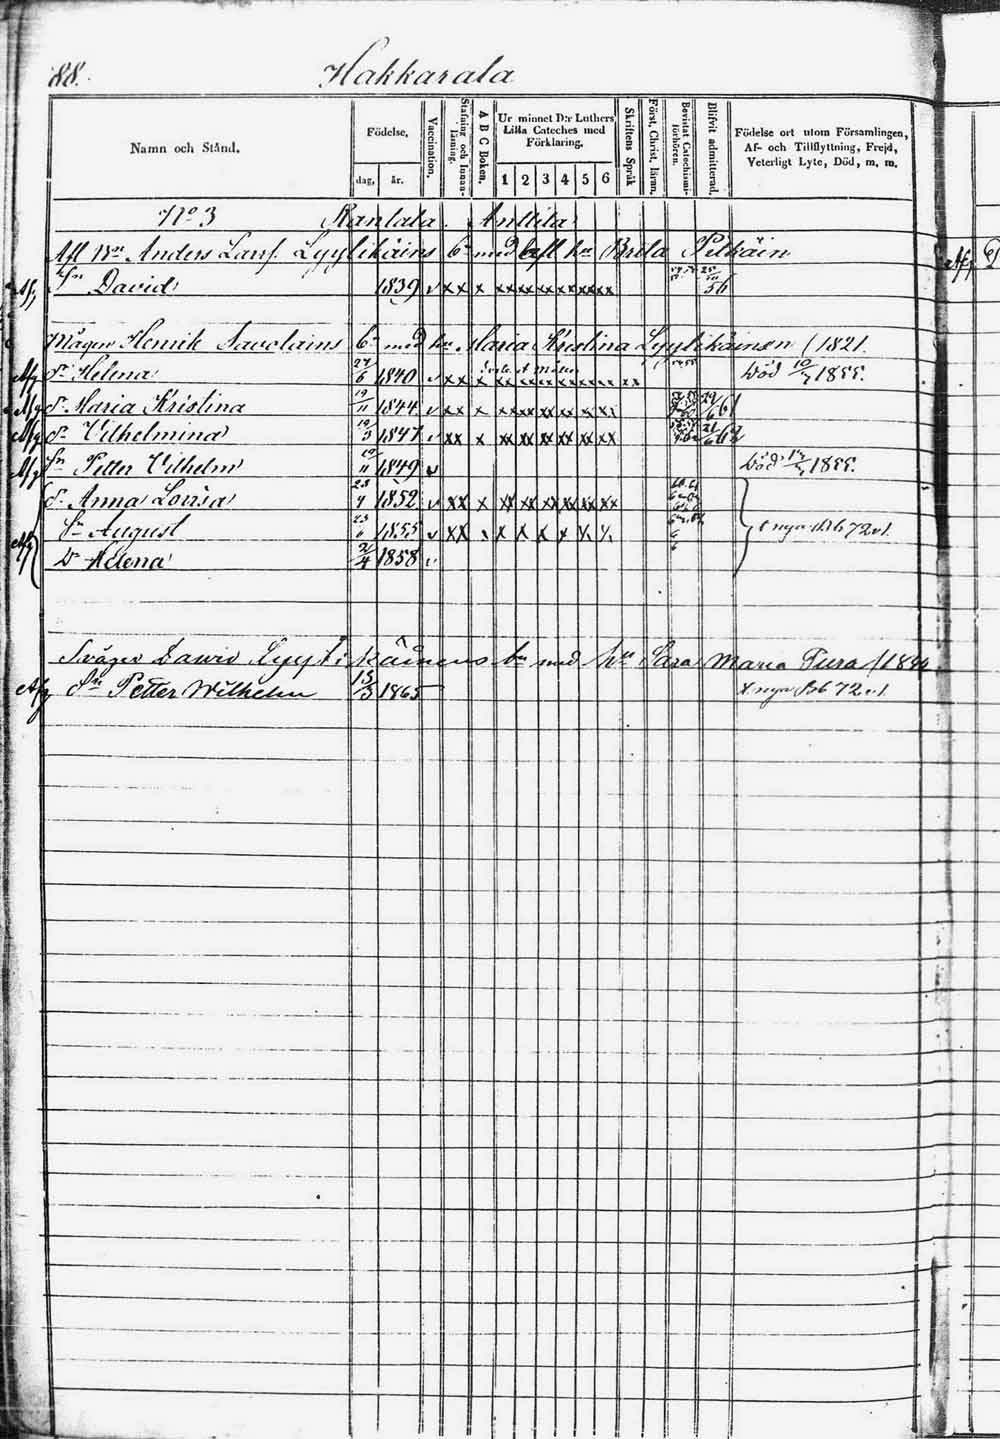 88.
Hakkarala
Namn och Stånd.
Födelse,
dag, år.
Vaccination.
Stafning och Innanläsning.
A B C Boken.
Ur minnet D:r Luthers Lilla Cateches med Förklaring.
1 2 3 4 5 6
Skriftens Språk
Först. Christ. läran.
Bevistat Catechismiförhören.
Blifvit admitterad.
Födelse ort utom Församlingen, Af- och Tillflyttning, Frejd, Veterligt Lyte, Död, m. m.
No 3 Rantala. Anttila
Afl Bn Anders Larsf. Lyytikäins Bn med afl hu Brita Pitkäin
Afg Sn David 1839 56
Mågen Henrik Savolains Bn med hu Maria Kristina Lyytikäinen /1821.
Afg Dr Helena 27/6 1840 Död 10/7 1855.
Afg Dr Maria Kristina 19/11 1844 61
Afg Dr Vilhelmina 10/3 1847
Afg Sn Petter Vilhelm 19/11 1849 Död 1855.
Dr Anna Lovisa 28/4 1852
Sn August 23/6 1855 t nya Bb 72 v1.
Afg Dr Helena 2/4 1858
Svåger David Lyytikäinens Bn med hu Sara Maria Tura
Afg Sn Petter Wilhelm 15/3 1865 t. nya Bb 72 v1.
Afg